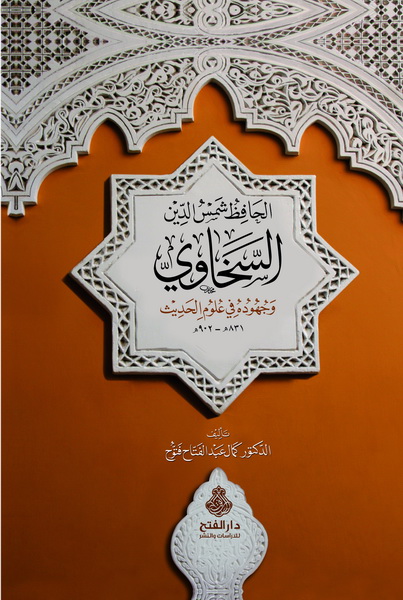 الحافظ شمس الدين
السخاوي
وجهوده في علوم الحديث
٨٣١هـ - ٩٠٢هـ
تأليف
الدكتور كمال عبد الفتاح فتوح
دار الفتح
للدراسات والنشر